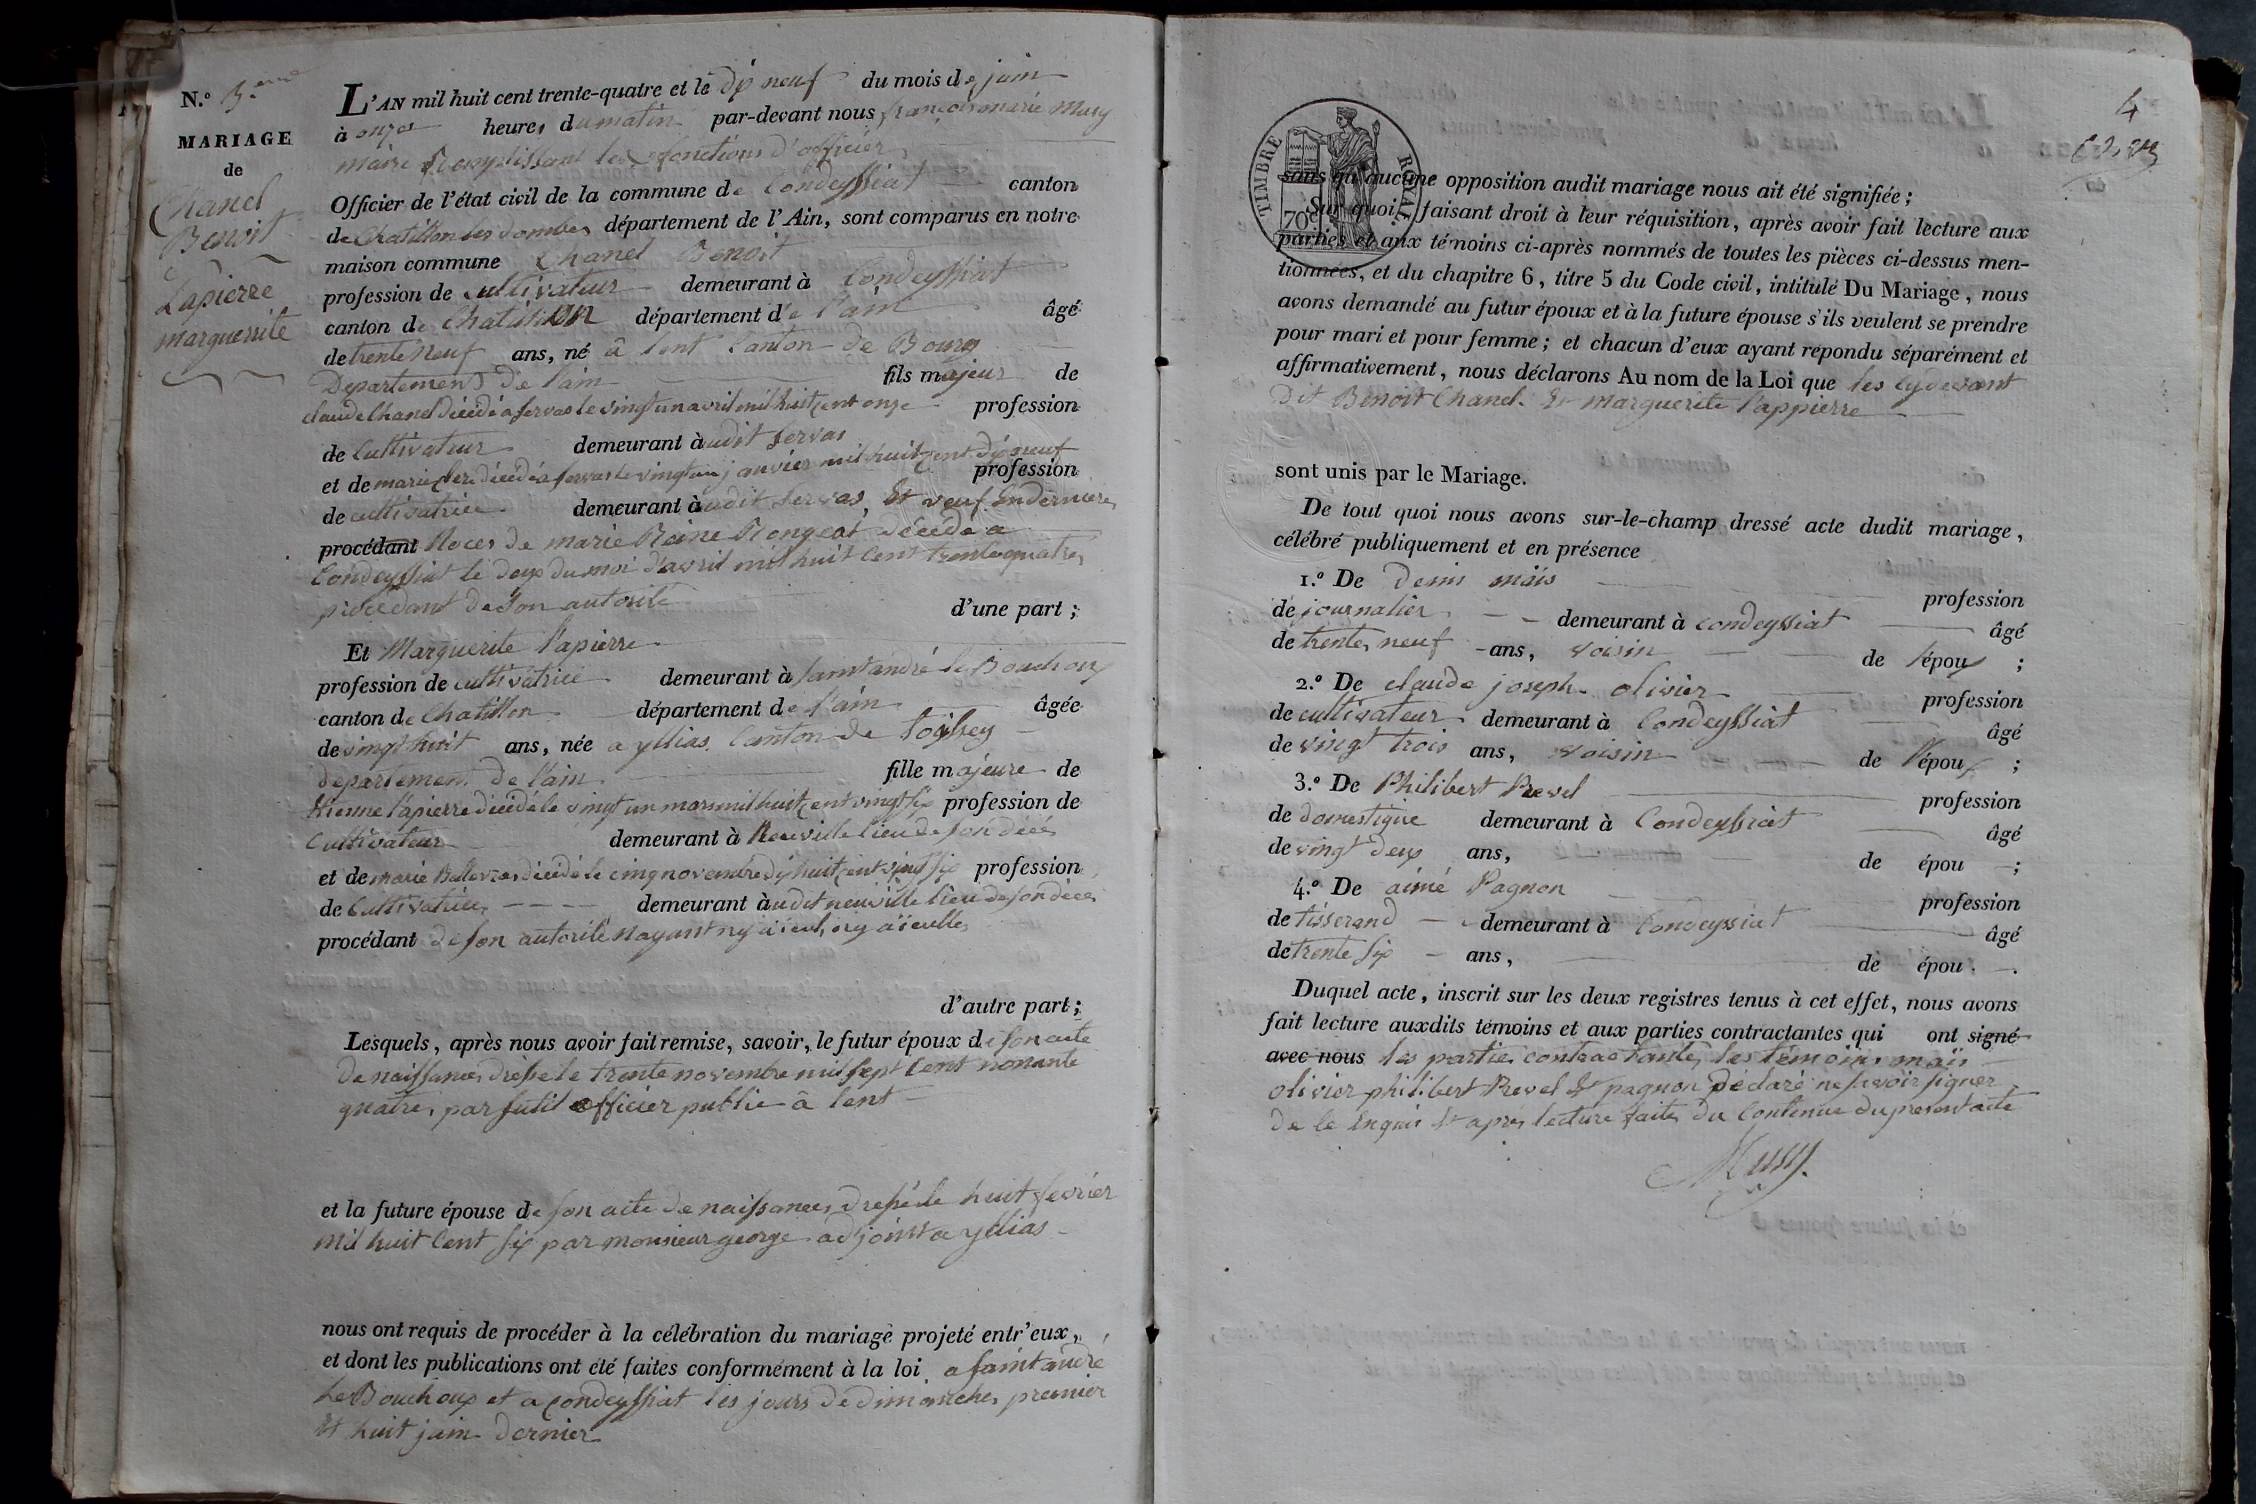 N.º 3.eme
MARIAGE
de
Chanel
Benoit
Lapierre
marguerite
L'AN mil huit cent trente-quatre et le dix neuf du mois de juin
à onze heures du matin par-devant nous françois marie Musy
maire Remplissant les fonctions d'officier
Officier de l'état civil de la commune de Condeyssiat canton
de Chatillon les dombes département de l'Ain, sont comparus en notre
maison commune Chanel Benoit
profession de cultivateur demeurant à Condeyssiat
canton de Chatillon département de l'ain âgé
de trente Neuf ans, né à lent Canton de Bourg
Departement de l'ain fils majeur de
claude Chanel décédé a servas le vingt un avril mil huit cent onze profession
de Cultivateur demeurant à udit Servas
et de marie décédé a servas le vingt un janvier mil huit cent dix neuf profession
de cultivatrice demeurant à udit servas, Et veuf En derniere
procédant Noces de marie Reine Rongeat décédé a
Condeyssiat le deux du moi d'avril mil huit Cent trente quatre
procedant de son autorité d'une part ;
Et Marguerite l'apierre
profession de cultivatrice demeurant à saint andré le Bouchoux
canton de Chatillon département de l'ain âgée
de vingt huit ans, née a yllias Canton de toissey
departement de l'ain fille majeure de
Etienne l'apierre décédé le vingt un mars mil huit cent vingt six profession de
Cultivateur demeurant à Neuville lieu de son décé
et de marie décédé le cinq novembre dix huit cent vingt six profession
de Cultivatrice demeurant à udit neuville lieu de son décé
procédant de son autorité Nayant ny aieul, ny aieulle
d'autre part ;
Lesquels, après nous avoir fait remise, savoir, le futur époux de son acte
de naissance dressé le trente novembre mil sept Cent nonante
quatre, par futil officier public à lent
et la future épouse de son acte de naissance dressé le huit fevrier
mil huit Cent six par monsieur george adjoint a yllias
nous ont requis de procéder à la célébration du mariage projeté entr'eux,
et dont les publications ont été faites conformément à la loi a saint andré
Le Bouchoux et a condeyssiat les jours de dimanche premier
Et huit juin dernier
4
TIMBRE ROYAL
70c
sans qu'aucune opposition audit mariage nous ait été signifiée ;
Sur quoi, faisant droit à leur réquisition, après avoir fait lecture aux
parties et aux témoins ci-après nommés de toutes les pièces ci-dessus men-
tionnées, et du chapitre 6, titre 5 du Code civil, intitulé Du Mariage, nous
avons demandé au futur époux et à la future épouse s'ils veulent se prendre
pour mari et pour femme ; et chacun d'eux ayant répondu séparément et
affirmativement, nous déclarons Au nom de la Loi que les cydevant
dit Benoit Chanel Et marguerite l'appierre
sont unis par le Mariage.
De tout quoi nous avons sur-le-champ dressé acte dudit mariage,
célébré publiquement et en présence
1.º De denis maïs profession
de journalier demeurant à condeyssiat âgé
de trente neuf ans, voisin de l'époux ;
2.º De claude joseph olivier profession
de cultivateur demeurant à Condeyssiat âgé
de vingt trois ans, voisin de l'époux ;
3.º De Philibert Prevel profession
de domestique demeurant à Condeyssiat âgé
de vingt deux ans, de épou ;
4.º De aimé Pagnon profession
de tisserand demeurant à Condeyssiat âgé
de trente six ans, de épou .
Duquel acte, inscrit sur les deux registres tenus à cet effet, nous avons
fait lecture auxdits témoins et aux parties contractantes qui ont signé
avec nous les partie contractante, les témoins maïs
olivier philibert Prevel Et pagnon déclaré ne savoir signer
de le Enquis Et après lecture faite du Contenue du present acte
Musy